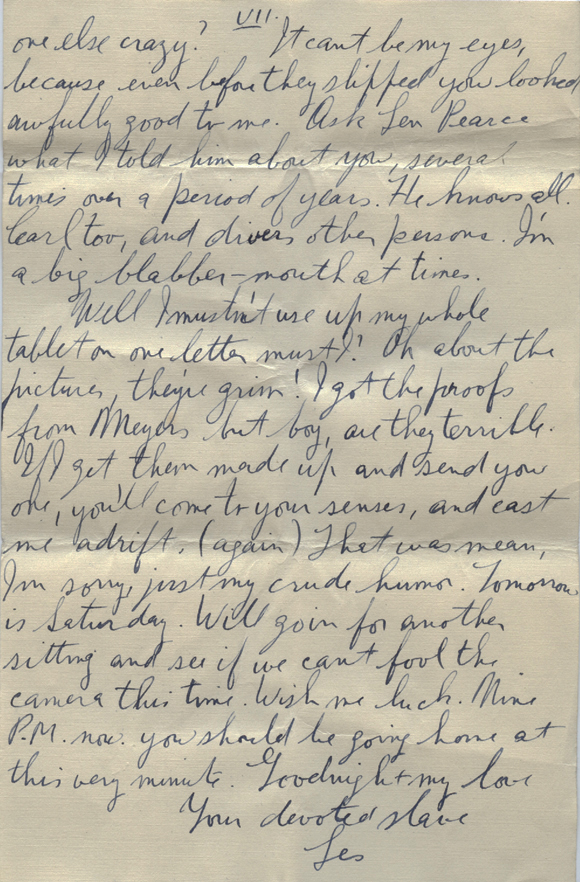 VII.
one else crazy? It cant be my eyes,
because even before they slipped you looked
awfully good to me. Ask Len Pearce
what I told him about you, several
times over a period of years. He knows all.
Earl too, and divers other persons. I'm
a big blabber-mouth at times.
Well I mustn't use up my whole
tablet on one letter must I? Oh about the
pictures, they're grim! I got the proofs
from Meyers but boy, are they terrible.
If I get them made up and send you
one, you'll come to your senses, and cast
me adrift. (again) That was mean,
I'm sorry, just my crude humor. Tomorrow
is Saturday. Will go in for another
sitting and see if we can't fool the
camera this time. Wish me luck. Nine
P.M. now. you should be going home at
this very minute. Goodnight my love
Your devoted slave
Les